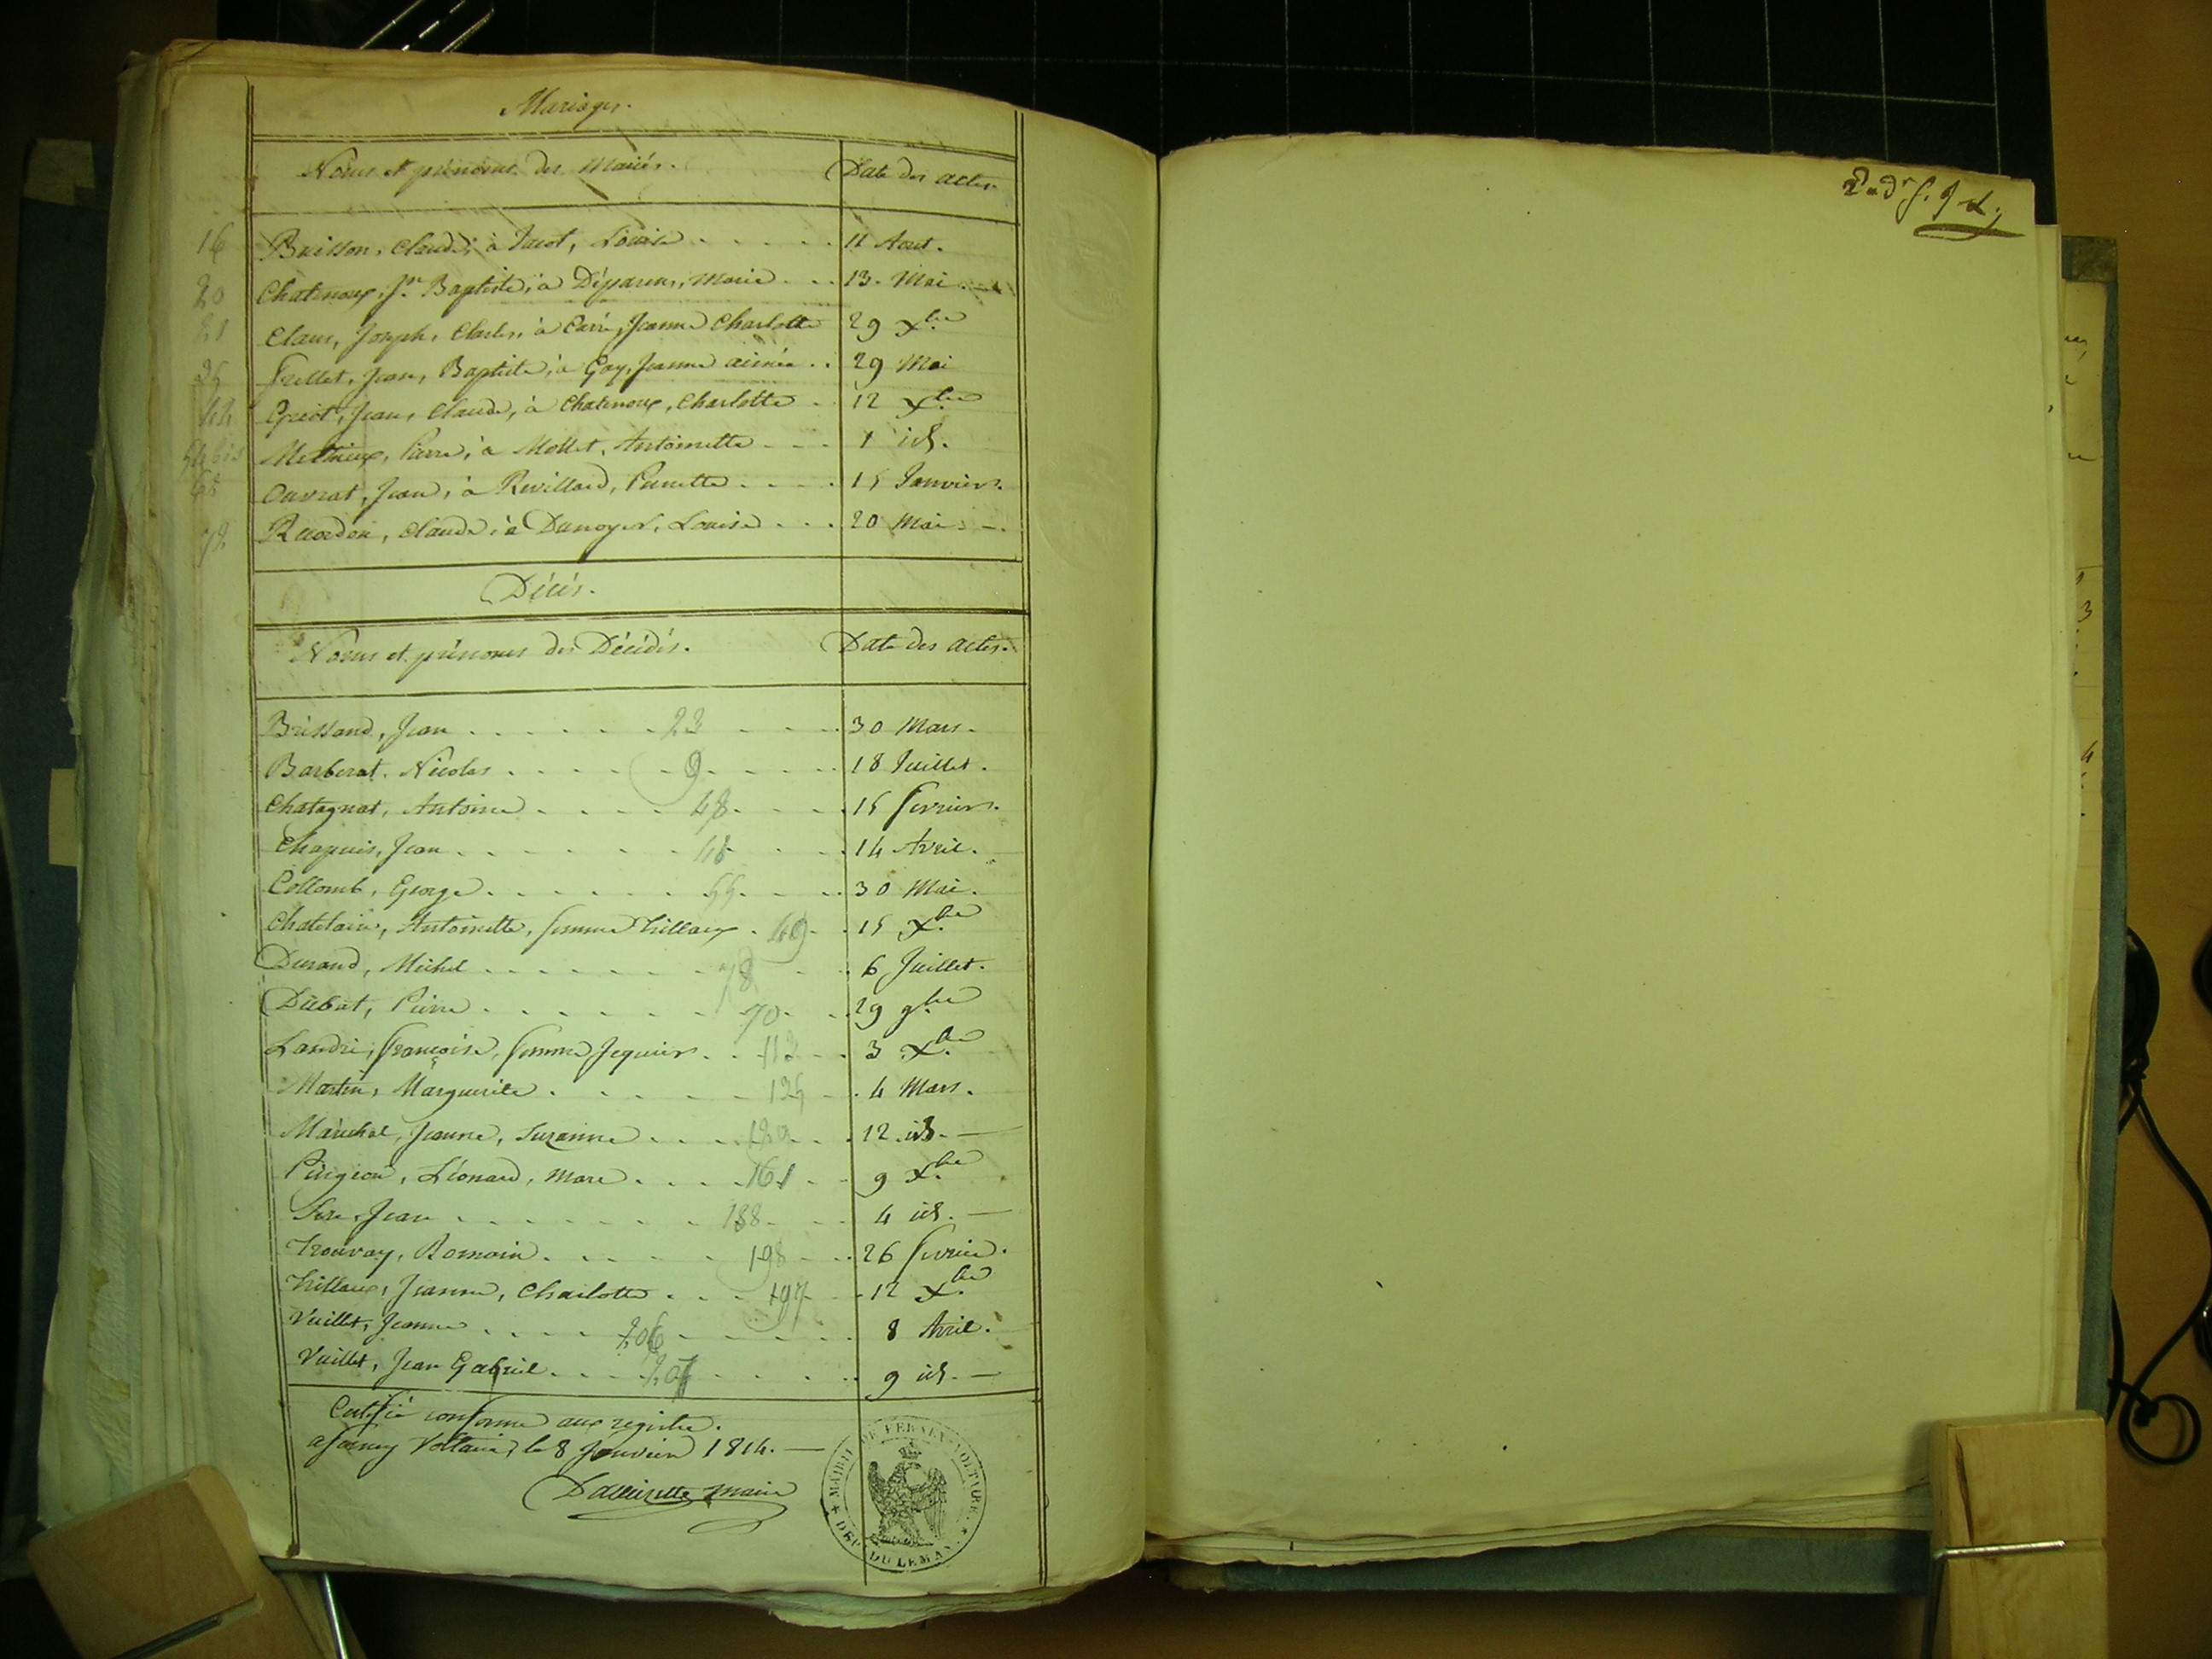 Mariages.
Noms et prénoms des Mariés. Date des actes.
16 Buisson, Claude, à Jacot, Louise 11 Aout.
20 Chatenoux, Jn. Baptiste, à Marie 13. Mai
21 Claus, Joseph, Charles, à Carré, Jeanne Charlotte 29 Xbre
25 Frellet, Jean, Baptiste, à Gay, Jeanne aimée 29 Mai
44 Griot, Jean, Claude, à Chatenoux, Charlotte 12 Xbre
Pierre, à Mollet, Antoinette 1 id.
Ouvrat, Jean, à Revillard, Pernette 15 Janvier.
72 Claude, à Dunoyer, Louise 20 Mai.
Décès.
Noms et prénoms des Décédés. Date des actes.
Brissand, Jean 23 30 Mars.
Barberat. Nicolas 9 18 Juillet.
Chatagnat, Antoine 48 15 fevrier.
Chapuis, Jean 14 Avril.
Collomb, George 55 30 Mai.
Chatelain, Antoinette, femme Trillaux 49 15 Xbre
Durand, Michel 78 6 Juillet.
Dubut, Pierre 70 29 9bre
Landri, françoise, femme Jequier 113 3 Xbre
Martin, Marguerite 125 4 Mars.
Maréchal, Jeanne, Suzanne 129 12 id.
Léonard, Marc 161 9 Xbre
Jean 188 4 id.
Trouvay, Romain 198 26 fevrier.
Trillaux, Jeanne, Charlotte 197 12 Xbre
Vuillet, Jeanne 206 8 Avril.
Vuillet, Jean Gabriel 207 9 id.
Certifié conforme aux registre.
a ferney Voltaire, le 8 Janvier 1814.
maire
MAIRIE DE FERNEY-VOLTAIRE.
DÉPT. DU LEMAN.